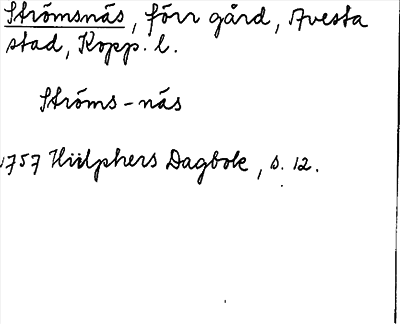 Strömsnäs, förr gård, Avesta
stad, Kopp. l.
Ströms-näs
1757 Hülphers Dagbok, s. 12.